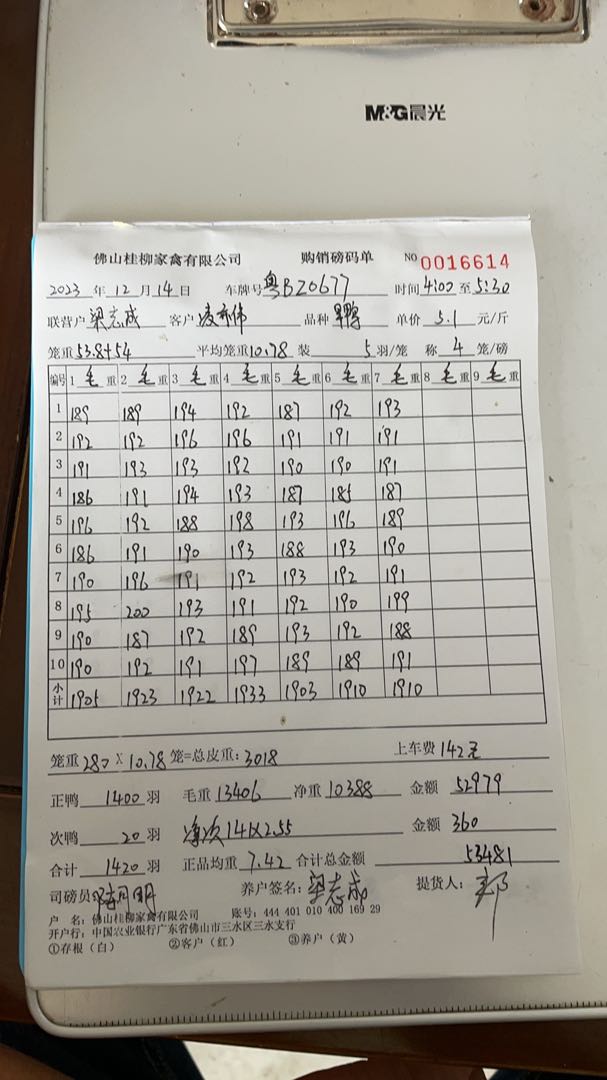 M&G晨光
佛山桂柳家禽有限公司 购销磅码单 NO 0016614
2023 年 12 月 14 日 车牌号 粤BZ0677 时间 4:02 至 5:30
联营户 梁志成 客户 凌 伟 品种 单价 5.1 元/斤
笼重 53.8+54 平均笼重 10.78 装 5 羽/笼 称 4 笼/磅
编号 1 毛 重 2 毛 重 3 毛 重 4 毛 重 5 毛 重 6 毛 重 7 毛 重 8 毛 重 9 毛 重
1 189 189 194 192 187 192 193
2 192 192 196 196 191 191 191
3 191 193 193 192 190 190 191
4 186 191 194 193 187 185 187
5 196 192 188 198 193 196 189
6 186 191 190 193 188 193 190
7 190 196 191 192 193 192 191
8 195 200 193 191 192 190 199
9 190 187 192 189 193 192 188
10 190 192 191 197 189 189 191
小计 1905 1923 1922 1933 1903 1910 1910
笼重 280 X 10.78 笼=总皮重: 3018 上车费 142元
正鸭 1400 羽 毛重 13406 净重 10388 金额 52979
次鸭 20 羽 净次 141X2.55 金额 360
合计 1420 羽 正品均重 7.42 合计总金额 53481
司磅员 养户签名: 梁志成 提货人:
户 名: 佛山桂柳家禽有限公司 账号: 444 401 010 400 169 29
开户行: 中国农业银行广东省佛山市三水区三水支行
①存根（白） ②客户（红） ③养户（黄）